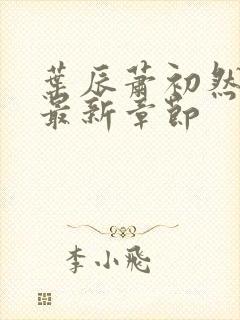 葉辰蕭初然
最新章節
李小飛